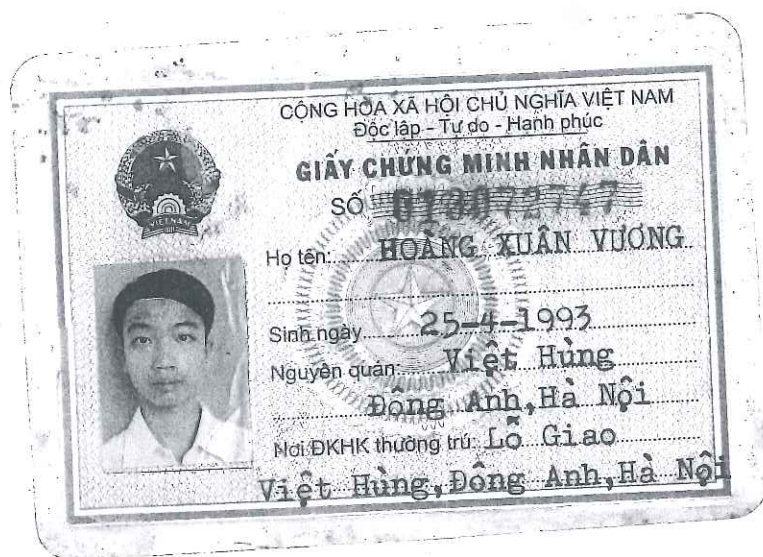 CỘNG HÒA XÃ HỘI CHỦ NGHĨA VIỆT NAM
Độc lập - Tự do - Hạnh phúc
GIẤY CHỨNG MINH NHÂN DÂN
SỐ
Họ tên: HOÀNG XUÂN VƯƠNG
Sinh ngày 25-4-1993
Nguyên quán: Việt Hùng
Đông Anh, Hà Nội
Nơi ĐKHK thường trú: Lỗ Giao
Việt Hùng, Đông Anh, Hà Nội
VIETNAM